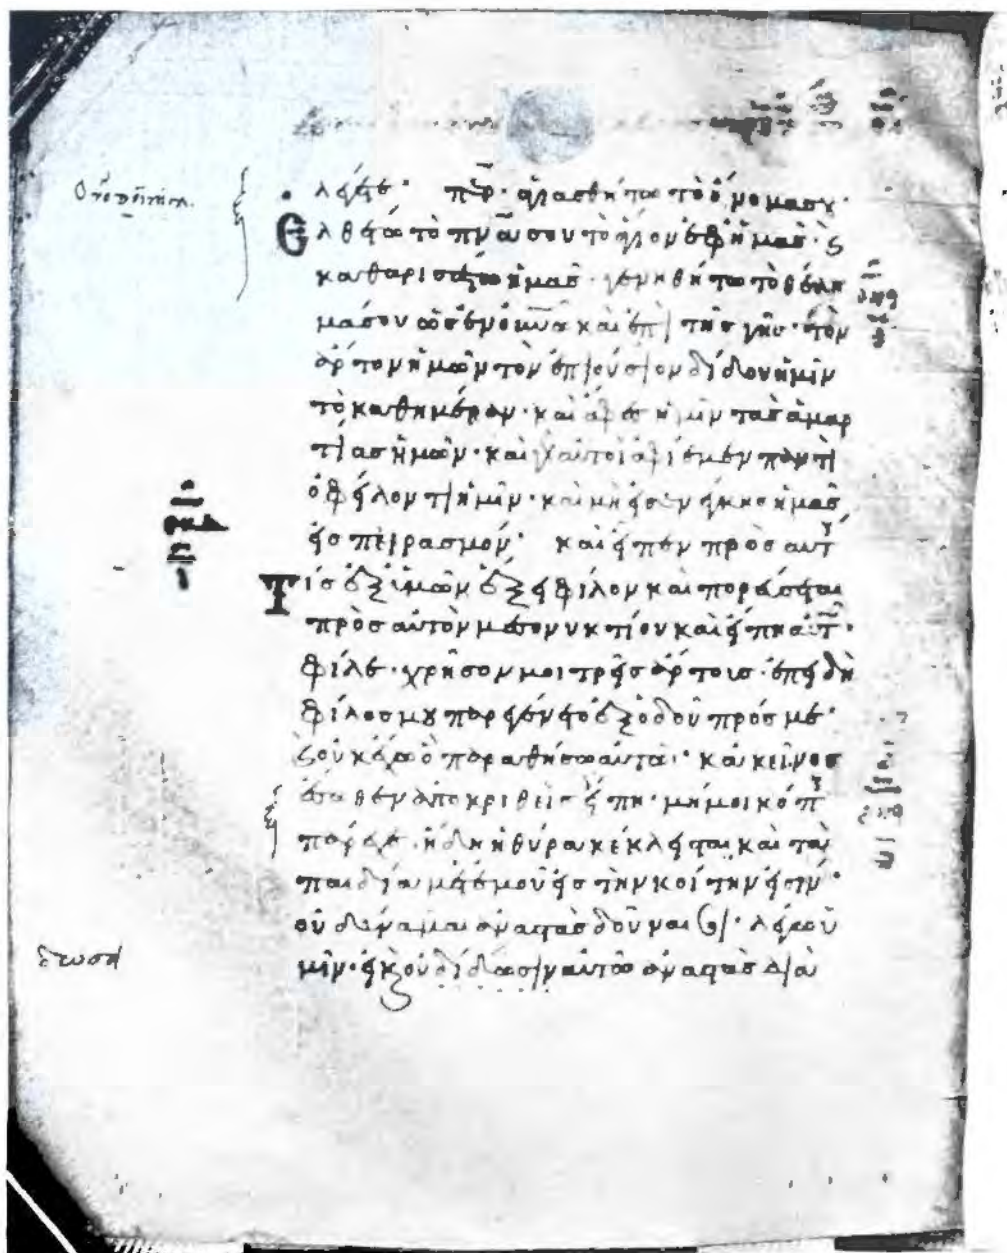 λέγετε· πε̄ρ· ἁγιασθήτω τὸ ὄνομα σου·
Ἐλθέτω τὸ πν̄α σου τὸ ἅγιον ἐφ' ἡμᾶς· ϗ
καθαρισάτω ἡμᾶς· γενηθήτω τὸ θέλη
μα σου ὡς ἐν οὐν̄ω καὶ ἐπὶ τῆς γῆς· τὸν
ἄρτον ἡμῶν τὸν ἐπιούσιον δίδου ἡμῖν
τὸ καθημέραν· καὶ ἄφες ἡμῖν τὰς ἁμαρ
τίας ἡμῶν· καὶ γὰρ αὐτοὶ ἀφίεμεν παντὶ
ὀφείλοντι ἡμῖν· καὶ μὴ εἰσενέγκης ἡμᾶς
εἰς πειρασμόν· καὶ εἶπεν πρὸς αὐτ
Τίς ἐξ ὑμῶν ἕξει φίλον καὶ πορεύσεται
πρὸς αὐτὸν μεσονυκτίου καὶ εἴπη αὐτ·
φίλε· χρῆσον μοι τρεῖς ἄρτους· ἐπειδὴ
φίλος μου παρεγένετο ἐξ ὁδοῦ πρός με·
ϗ οὐκ ἔχω ὃ παραθήσω αὐτῶ· κακεῖνος
ἔσωθεν ἀποκριθεὶς εἴπη· μή μοι κόπ
πάρεχε· ἤδη ἡ θύρα κέκλεισται καὶ τὰ
παιδία μετ' ἐμοῦ εἰς τὴν κοίτην εἰσίν·
οὐ δύναμαι ἀναστὰς δοῦναι σοι· λέγω ὑ
μῖν· εἰ καὶ οὐ δίδωσιν αὐτῶ ἀναστὰς διὰ